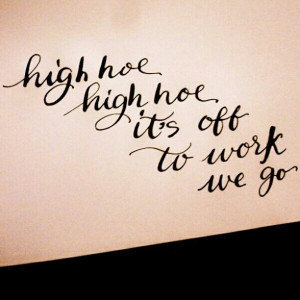 high hoe
high hoe
it's off
to work
we go